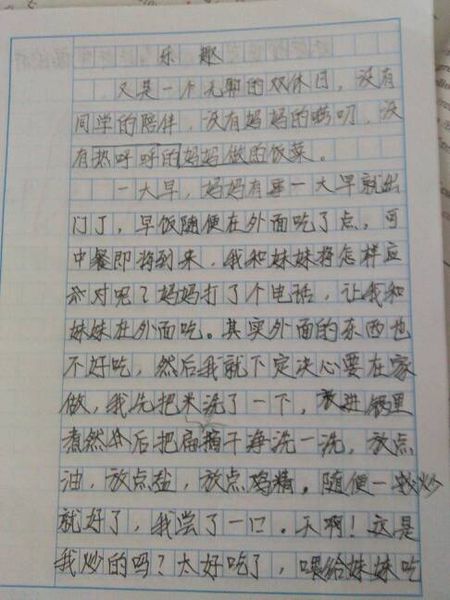 乐趣
又是一个无聊的双休日，没有
同学的陪伴，没有妈妈的唠叨，没
有热呼呼的妈妈做的饭菜。
一大早，妈妈有事一大早就出
门了，早饭随便在外面吃了点，可
中餐即将到来，我和妹妹将怎样应
对呢？妈妈打了个电话，让我和
妹妹在外面吃。其实外面的东西也
不好吃，然后我就下定决心要在家
做，我先把米洗了一下，放进锅里
煮然后把扁干净洗一洗，放点
油，放点盐，放点鸡精。随便一炒
就好了，我尝了一口。天啊！这是
我炒的吗？太好吃了，喂给妹妹吃